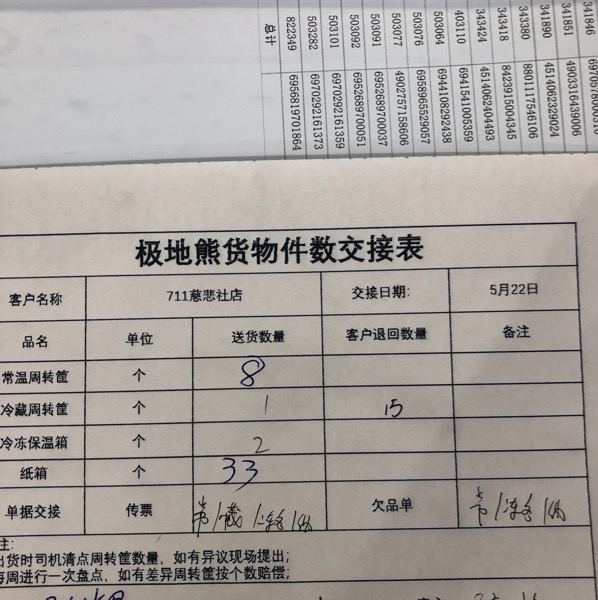 总计
822349 6956819701864
503282 6970292161373
503101 6970292161359
503092 6952689700051
503091 6952689700037
503077 4902757158606
503076 6958965529057
503064 6944108292438
403110 6941541005359
343424 4514062404493
343418 8423915004345
343380 8801117546106
341890 4514062329024
341851 4903316439006
341846
极地熊货物件数交接表
客户名称 711慈悲社店 交接日期: 5月22日
品名 单位 送货数量 客户退回数量 备注
常温周转筐 个 8
冷藏周转筐 个 1 15
冷冻保温箱 个 2
纸箱 个 33
单据交接 传票 欠品单
注:
出货时司机清点周转筐数量，如有异议现场提出;
每周进行一次盘点，如有差异周转筐按个数赔偿;